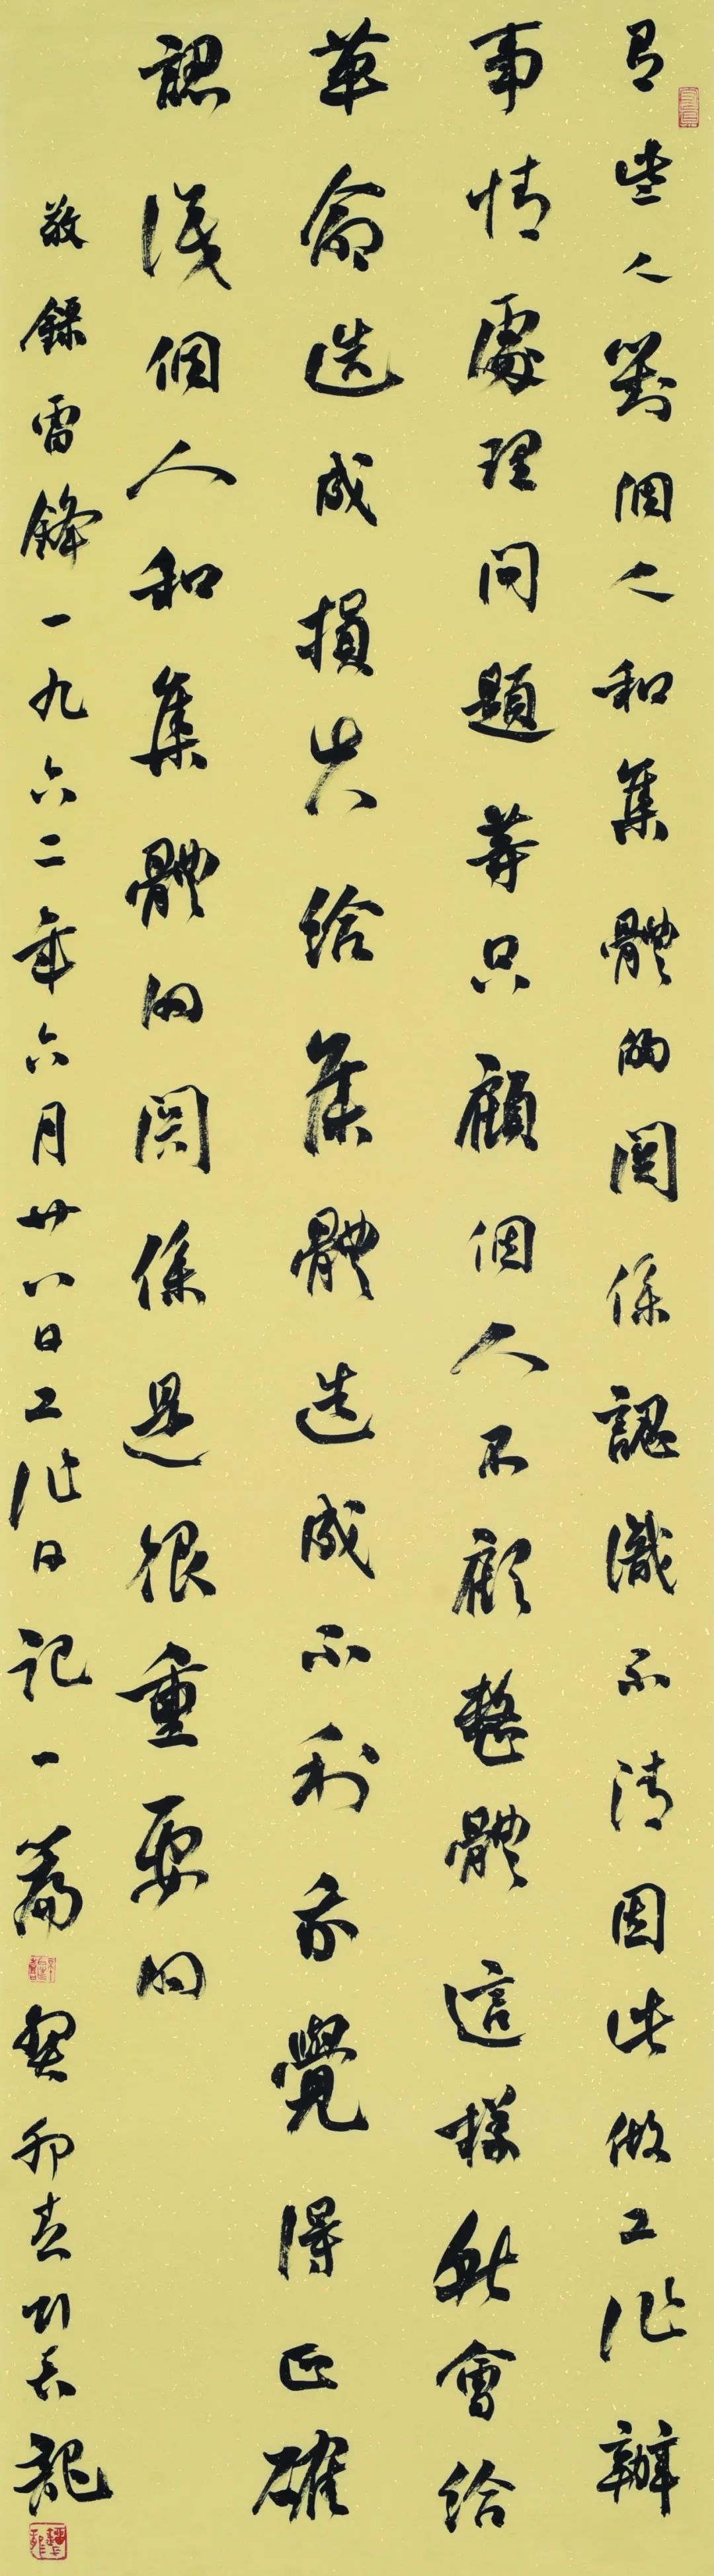 有些人對個人和集體的関係認識不清因此做工作辦
事情處理问題等只顧個人不顧整體這様就會给
革命造成損失给集體造成不利我覺得正確
認识個人和集體的関係是很重要的
敬録雷鋒一九六二年六月廿八日工作日记一篇癸卯春刘長龍